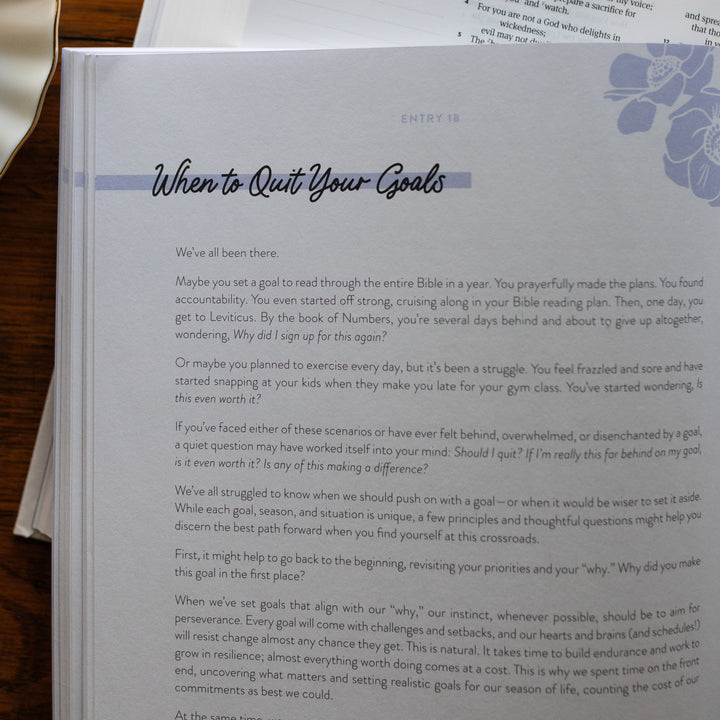 my voice;
prepare a sacrifice for
you and watch.
4 For you are not a God who delights in
wickedness;
evil may not
5 The
and
that
12
ENTRY 18
When to Quit Your Goals
We've all been there.
Maybe you set a goal to read through the entire Bible in a year. You prayerfully made the plans. You found
accountability. You even started off strong, cruising along in your Bible reading plan. Then, one day, you
get to Leviticus. By the book of Numbers, you're several days behind and about to give up altogether,
wondering, Why did I sign up for this again?
Or maybe you planned to exercise every day, but it's been a struggle. You feel frazzled and sore and have
started snapping at your kids when they make you late for your gym class. You've started wondering, Is
this even worth it?
If you've faced either of these scenarios or have ever felt behind, overwhelmed, or disenchanted by a goal,
a quiet question may have worked itself into your mind: Should I quit? If I'm really this far behind on my goal,
is it even worth it? Is any of this making a difference?
We've all struggled to know when we should push on with a goal—or when it would be wiser to set it aside.
While each goal, season, and situation is unique, a few principles and thoughtful questions might help you
discern the best path forward when you find yourself at this crossroads.
First, it might help to go back to the beginning, revisiting your priorities and your "why." Why did you make
this goal in the first place?
When we've set goals that align with our "why," our instinct, whenever possible, should be to aim for
perseverance. Every goal will come with challenges and setbacks, and our hearts and brains (and schedules!)
will resist change almost any chance they get. This is natural. It takes time to build endurance and work to
grow in resilience; almost everything worth doing comes at a cost. This is why we spent time on the front
end, uncovering what matters and setting realistic goals for our season of life, counting the cost of our
commitments as best we could.
At the same time,